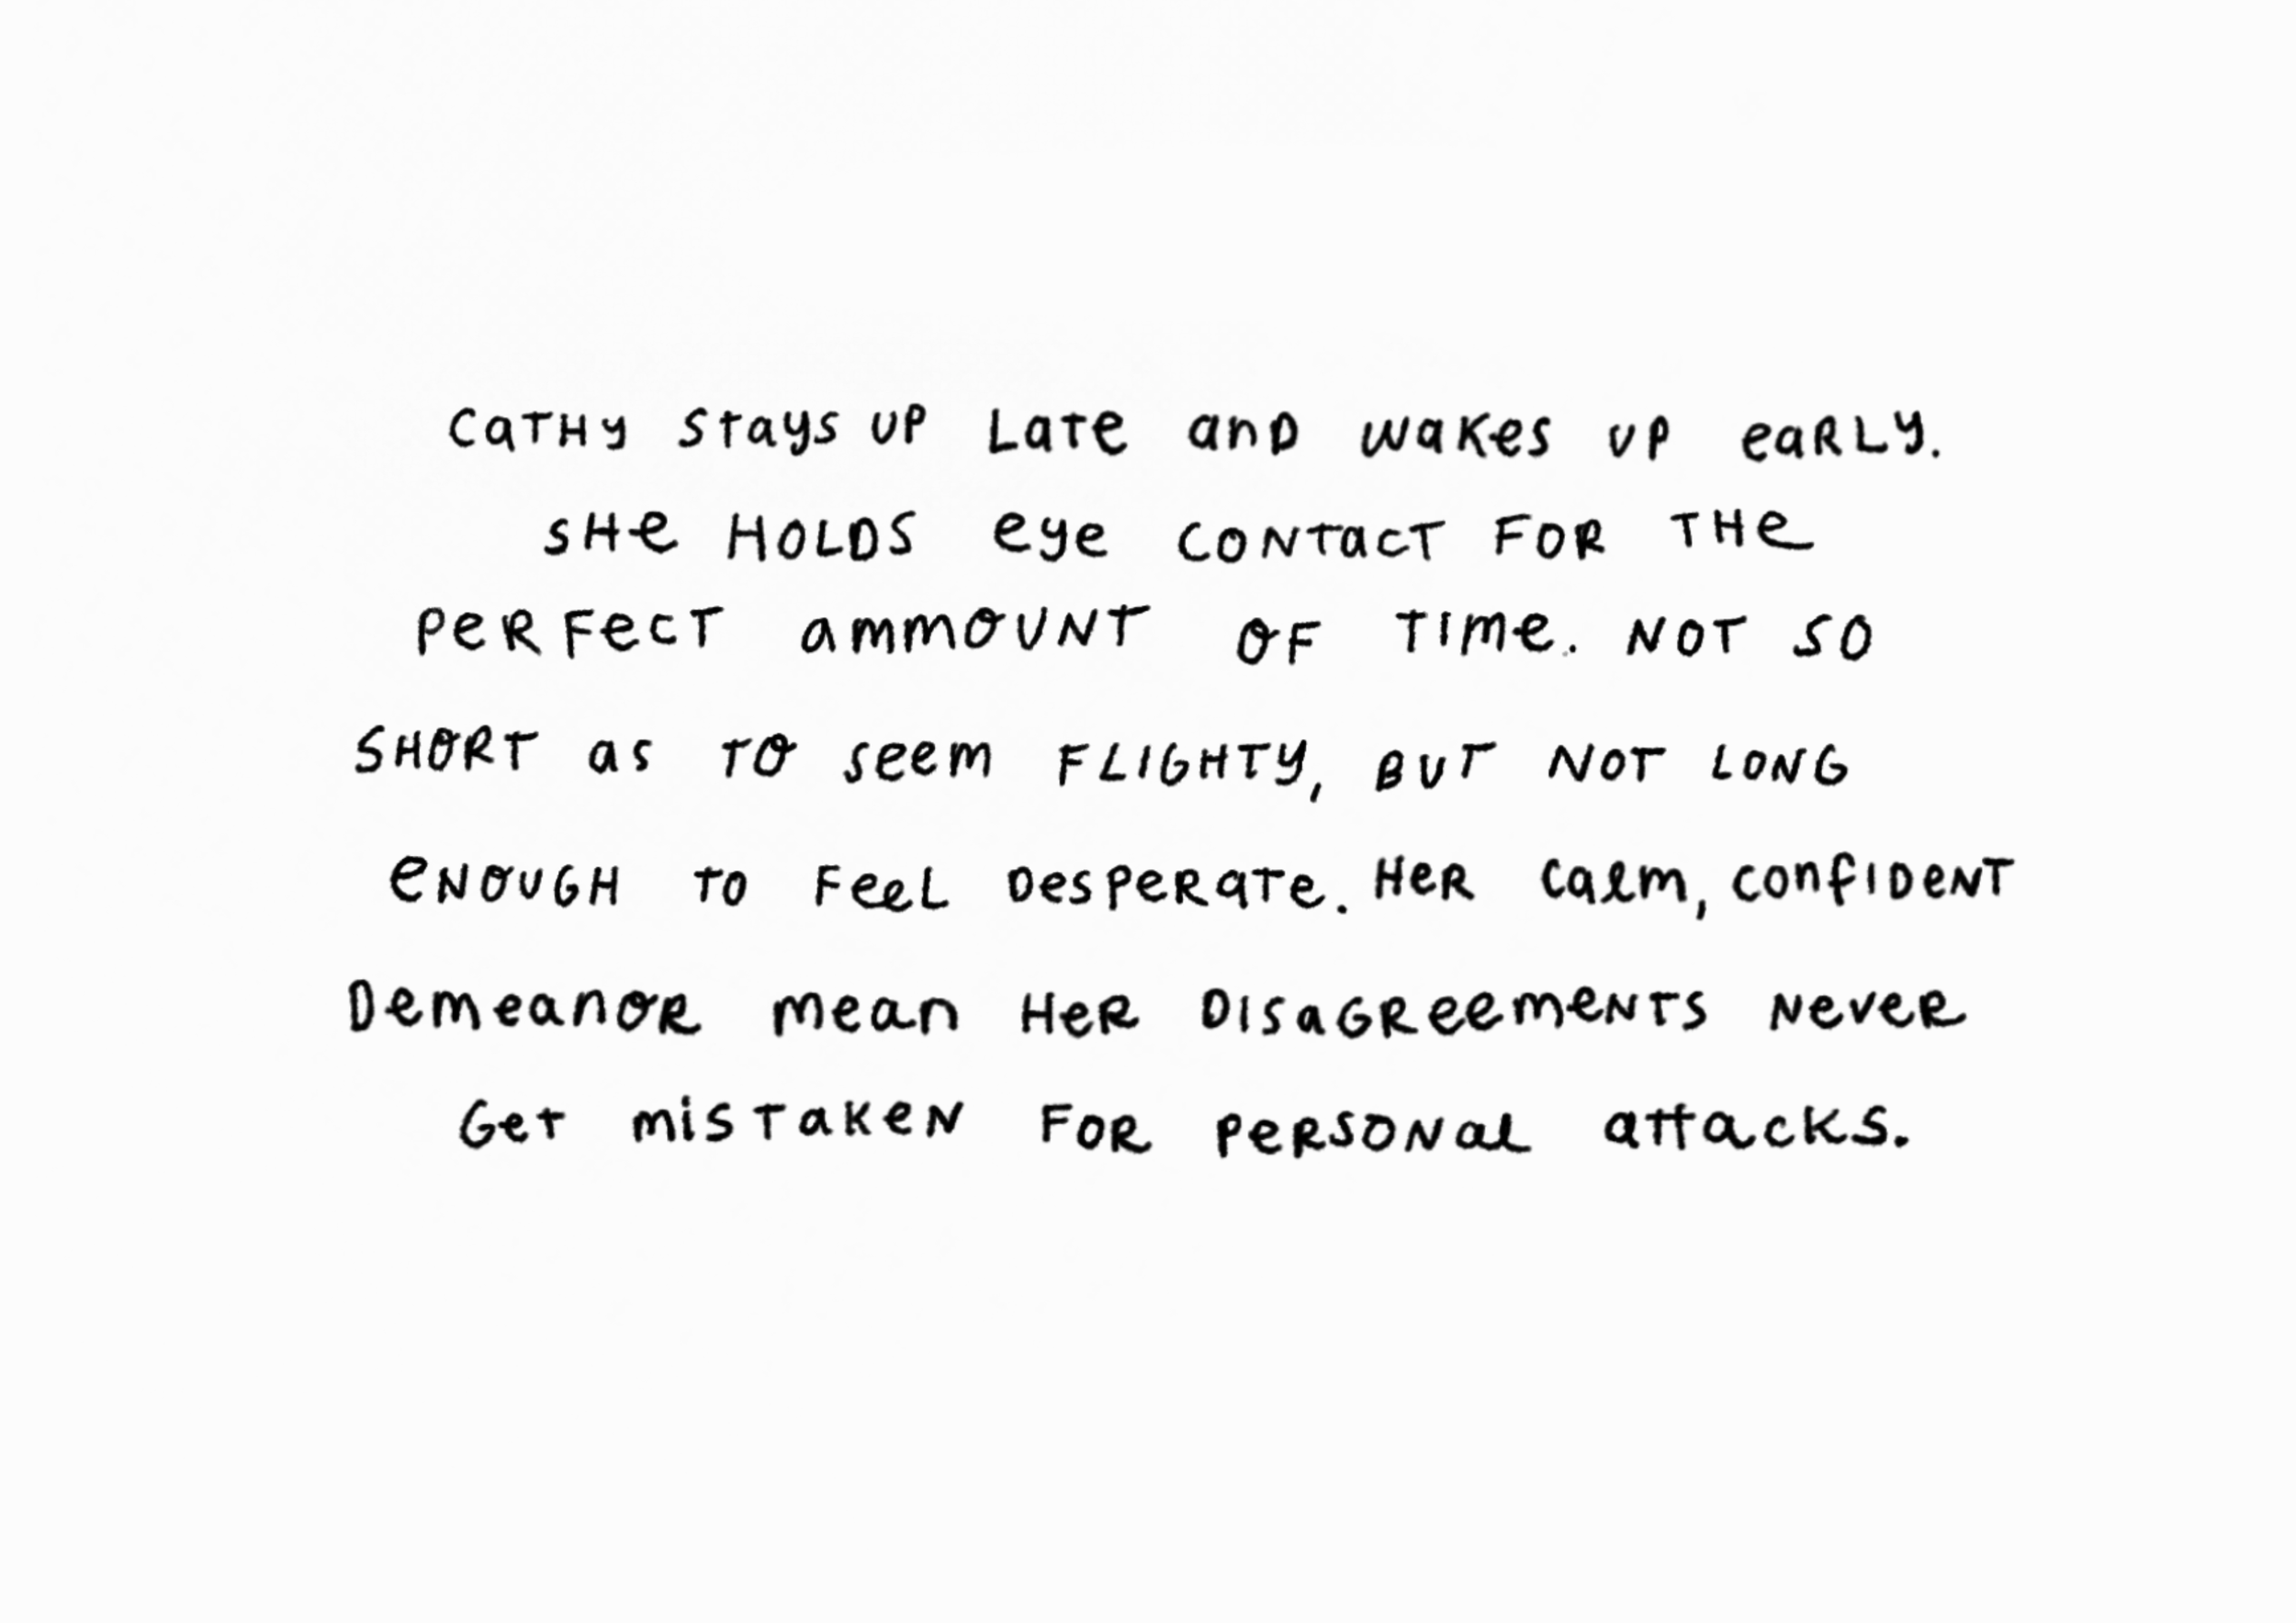 CaTHy stays UP Late anD wakes UP eaRLy.
sHe HOLDS eye CONTacT FOR THe
PeRFecT ammOUNT OF TIme. NOT SO
SHORT as TO seem FLIGHTY, BUT NOT LONG
eNOUGH TO FeeL DesPeRaTe. HeR calm, confIDeNT
DemeanOR mean HeR DISaGReemeNTS NeveR
GeT misTaKeN FOR PeRSONal attacKS.